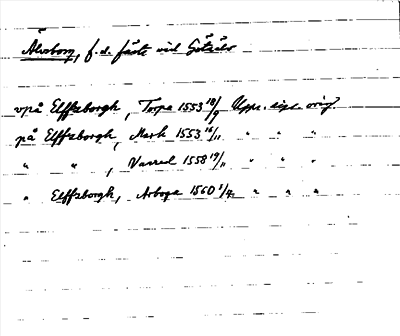 Älvsborg, f.d. fäste vid Götaälv
vpå Elffzborgh, Torpa 1553 18/9 Upps. eige. orig.
på Elffzborgh, Mark 1553 16/11 " " "
" " , Varred 1558 19/11 " " "
" Elffzborgh, Arboga 1560 1/4 " " "